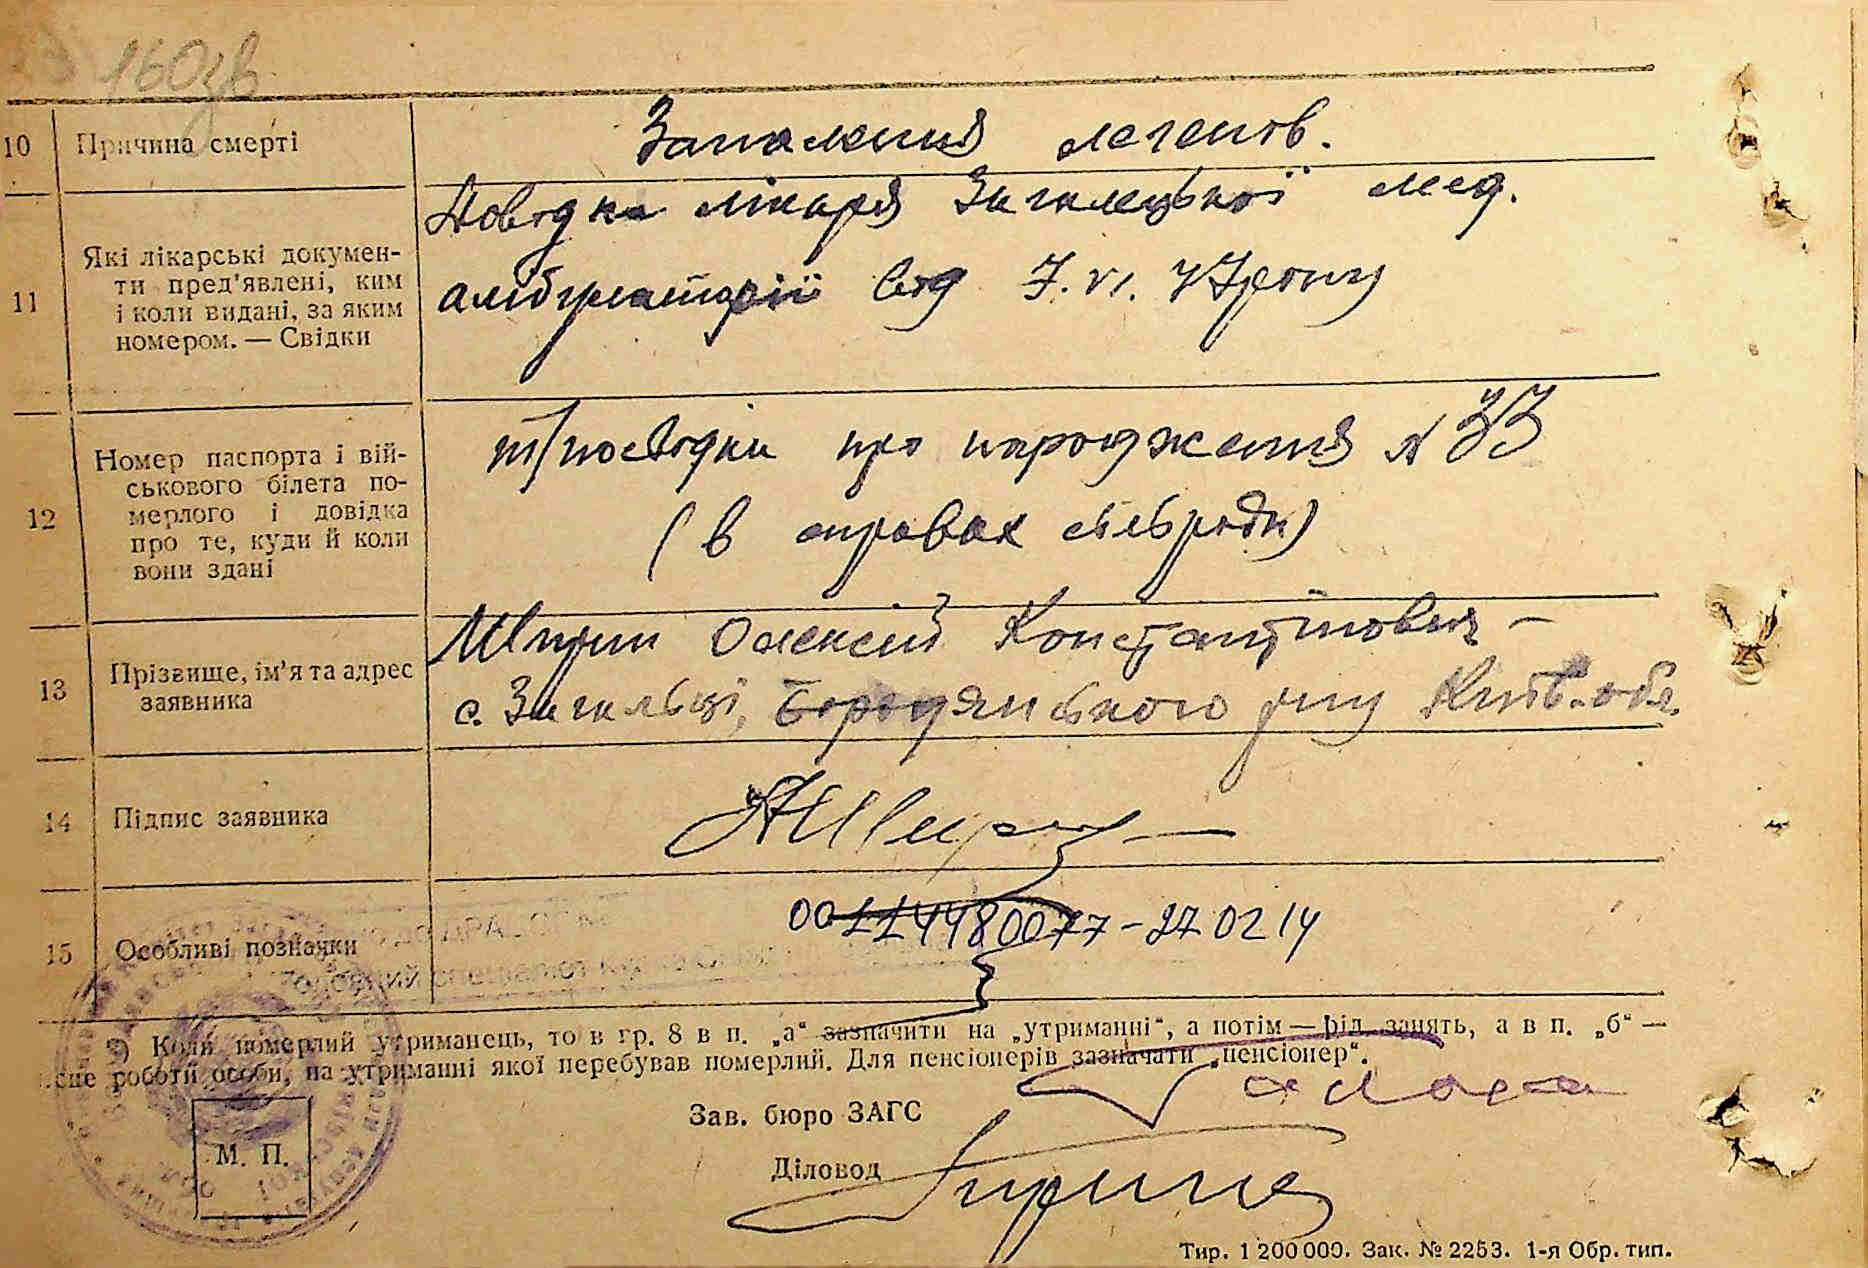 160зв
10 Причина смерті Запалення легенів.
11 Які лікарські докумен-
ти пред'явлені, ким
і коли видані, за яким
номером. — Свідки
Довідка лікаря Загалецької мед.
амбулаторії від 7.VI.
12 Номер паспорта і вій-
ськового білета по-
мерлого і довідка
про те, куди й коли
вони здані
посвідки про народження №
(в справах сільради)
13 Прізвище, ім'я та адрес
заявника
Олексій Константінович —
с. Загальці, Бородянського р-ну Київ. обл.
14 Підпис заявника
15 Особливі позначки
00114480077-270214
*) Коли померлий утриманець, то в гр. 8 в п. „а“ зазначити на „утриманні“, а потім — рід занять, а в п. „б“ —
місце роботи особи, на утриманні якої перебував померлий. Для пенсіонерів зазначати „пенсіонер“.
Зав. бюро ЗАГС
М. П.
Діловод
Тир. 1 200 000. Зак. № 2253. 1-я Обр. тип.